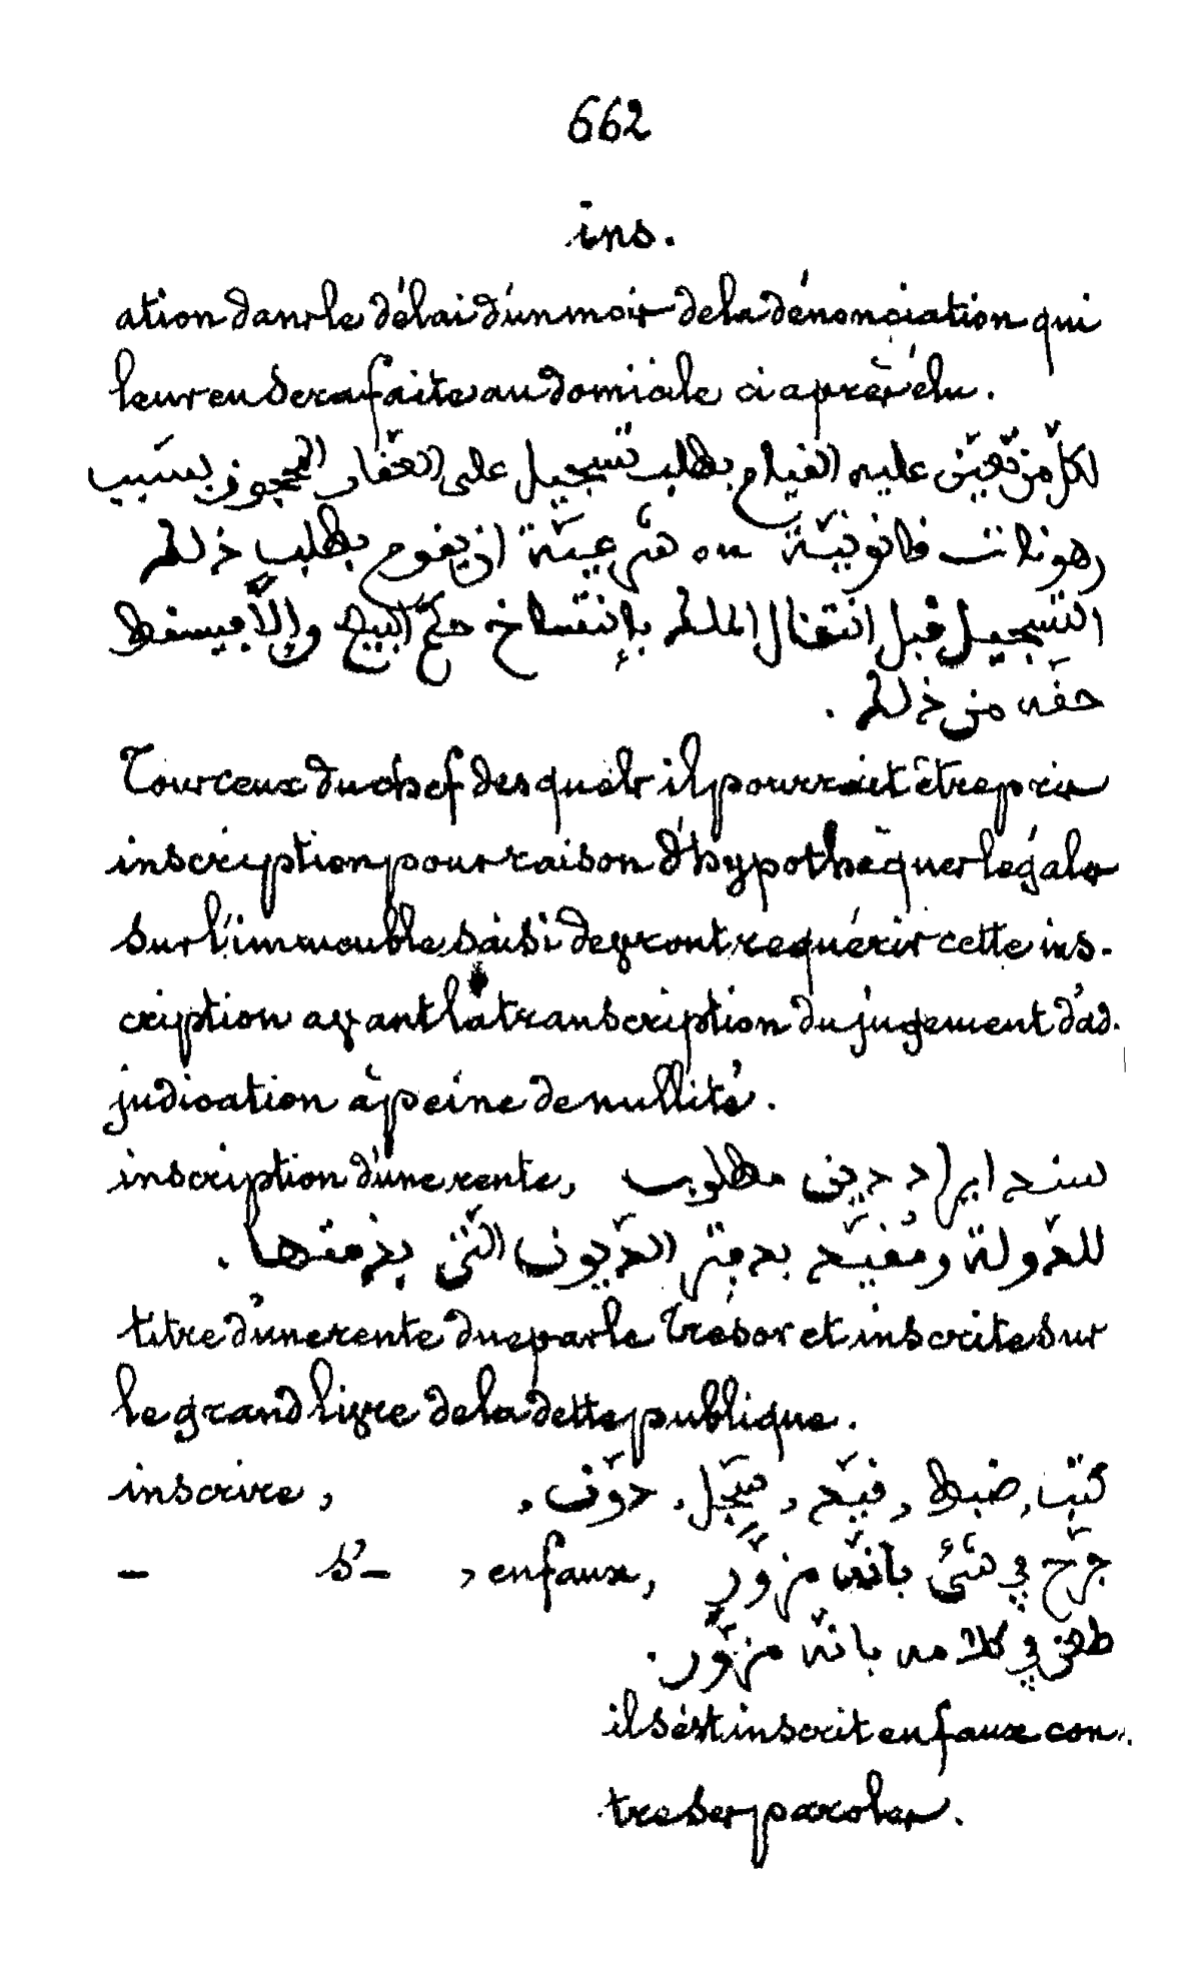 662
ins.
ation dans le délai d'un mois de la dénonciation qui
leur en sera faite au domicile ci après élu.
لكلّ من تعيّن عليه القيام بطلب تسجيل على العقار المحجوز بسبب
رهونات قانونيّة ou شرعيّة ان يقوم بطلب ذلك
التسجيل قبل انتقال الملك بإنتساخ حكم البيع وإلاّ فيسقط
حقّه من ذلك .
Tous ceux du chef desquels il pourrait être pris
inscription pour raison d'hypothèques légales
sur l'immeuble saisi devront requérir cette ins-
cription avant la transcription du jugement d'ad-
judication à peine de nullité.
inscription d'une rente, سند ايراد دين مطلوب
للدّولة ومُقيّد بدفتر الدّيون الّتي بذمّتها .
titre d'une rente due par le Trésor et inscrite sur
le grand livre de la dette publique.
inscrire, كتب, ضبط, قيّد, سجّل, دوّن,
— s'—, en faux, جرّح في شئ بانّه مزوّر
طعن في كلامه بانّه مزوّر.
il s'est inscrit en faux con-
tre ses paroles.